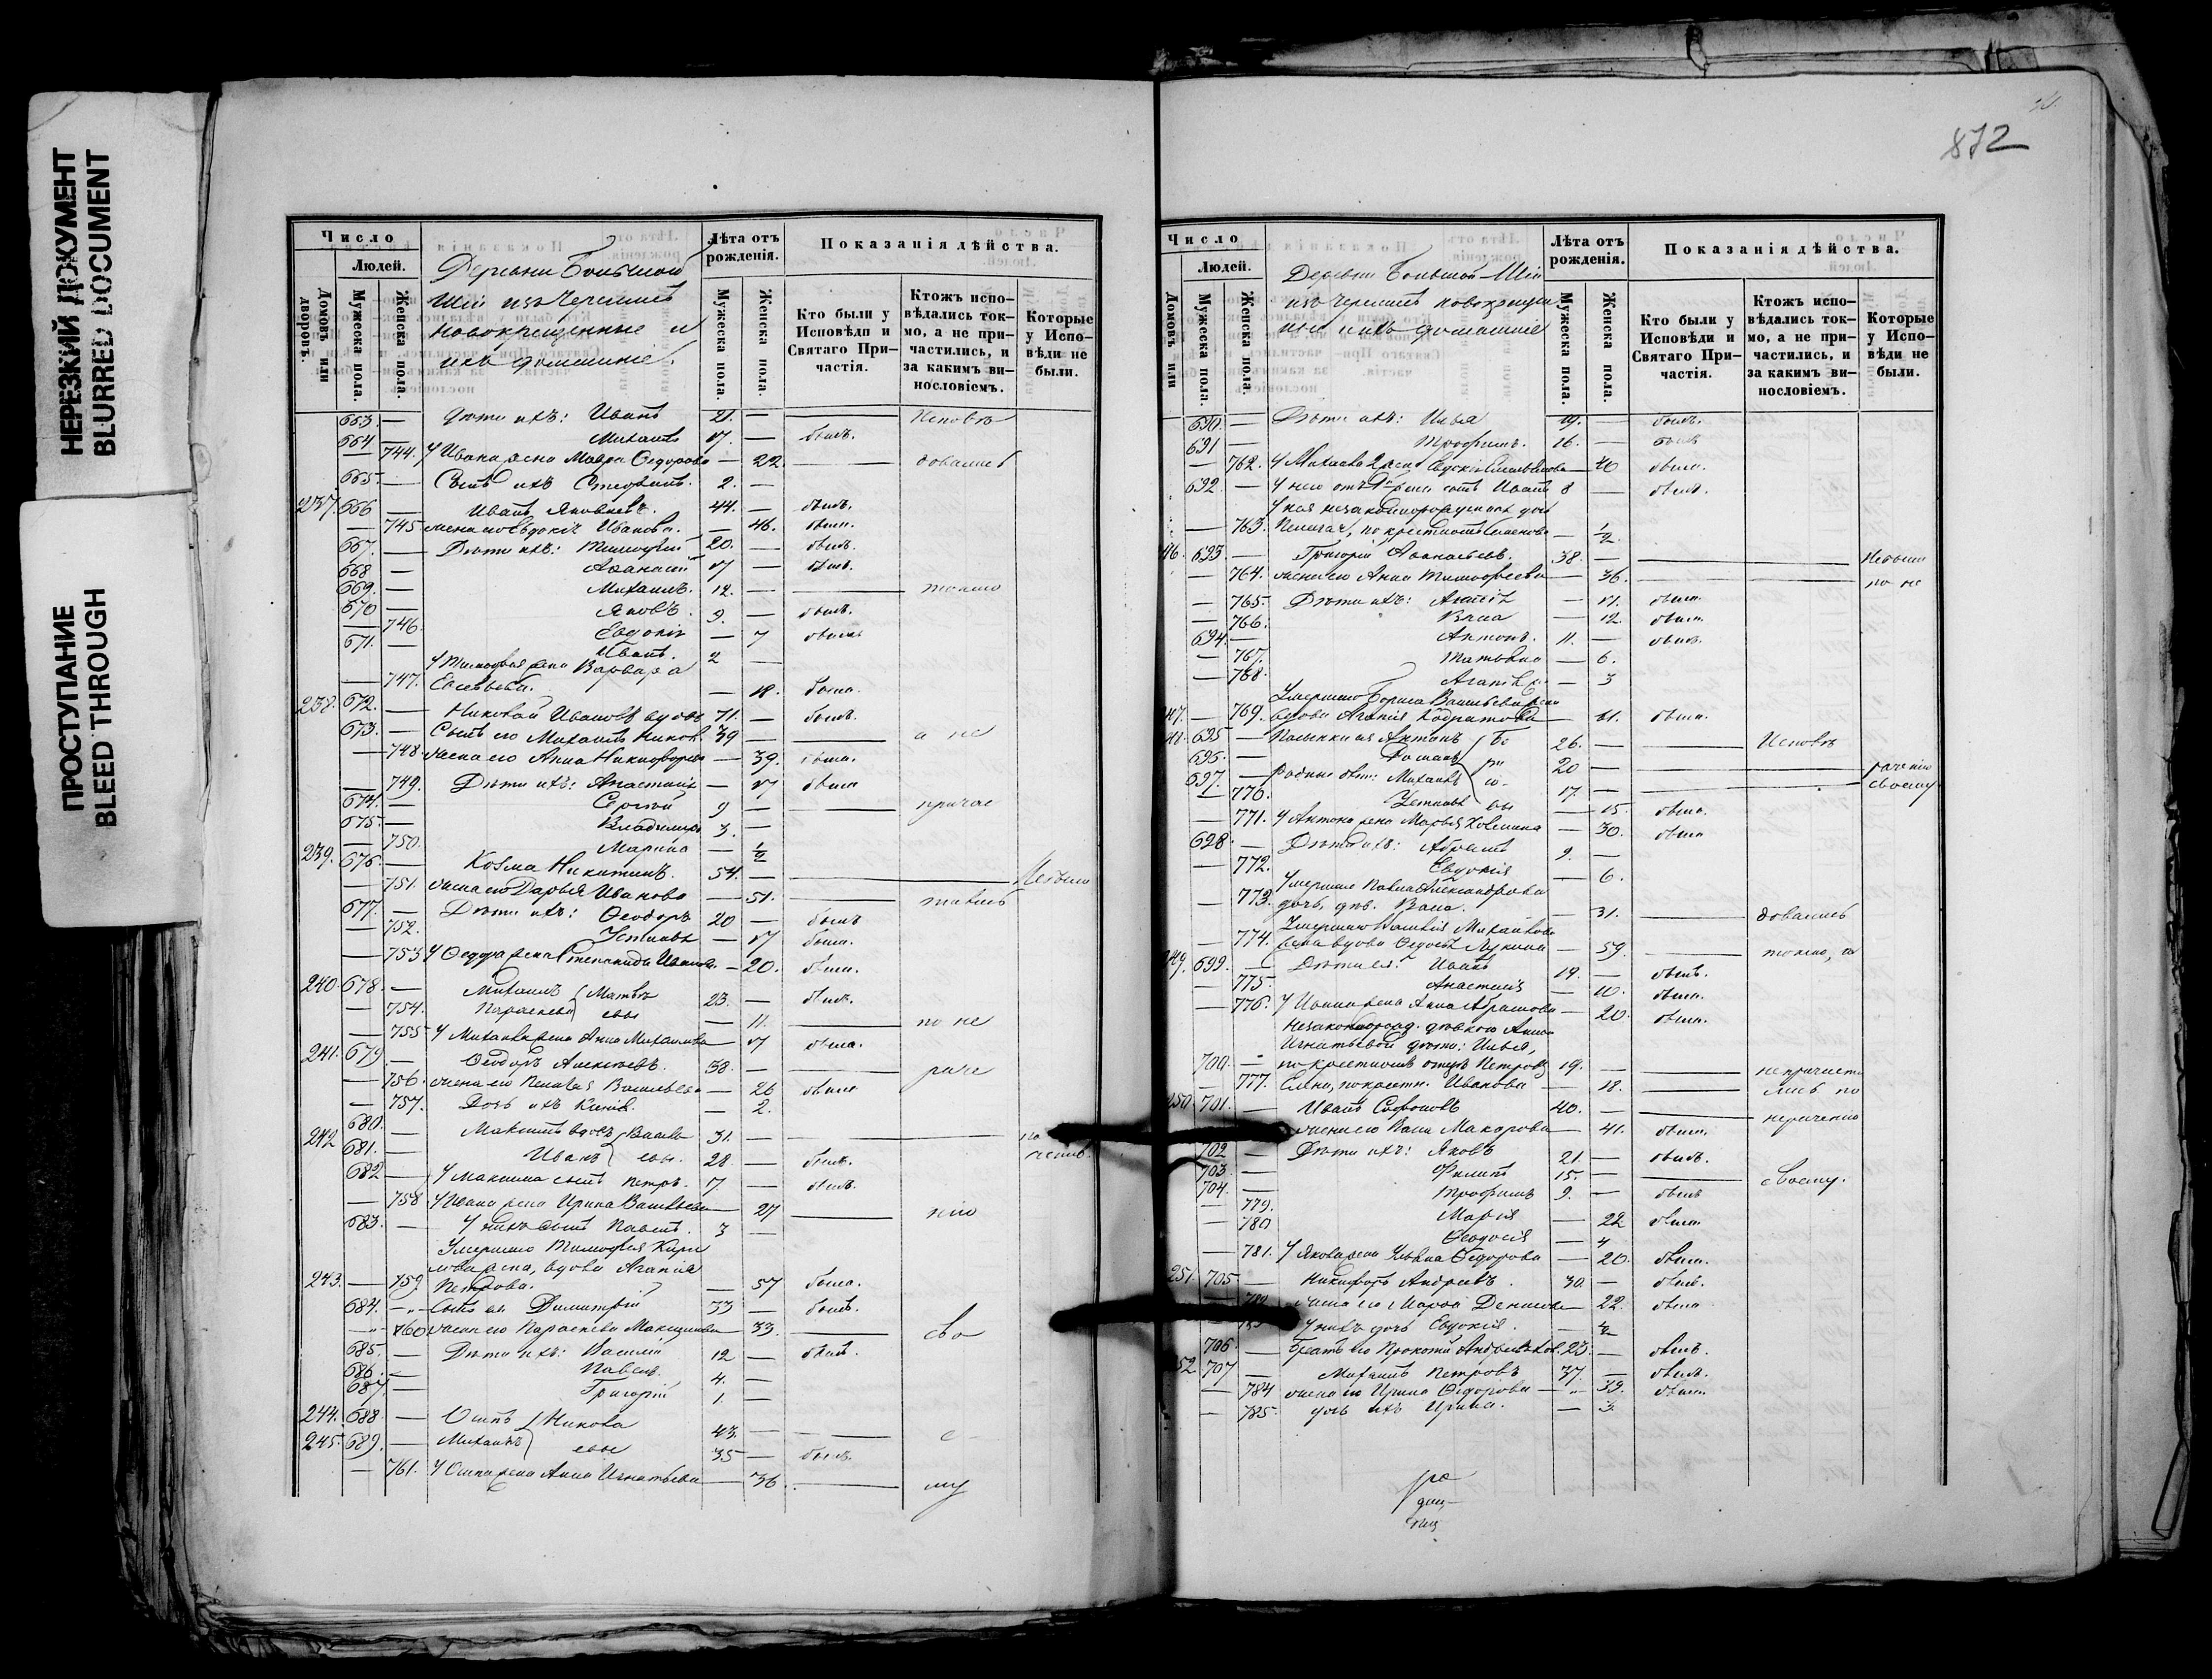 НЕРЕЗКИЙ ДОКУМЕНТ
BLURRED DOCUMENT
ПРОСТУПАНИЕ
BLEED THROUGH
Число
Людей.
Домовъ или дворовъ.
Мужеска пола.
Женска пола.
Деревни Большой
Шіи изъ Черемисъ
Новокрещенные и
ихъ домашніе.
Лѣта отъ рожденія.
Мужеска пола.
Женска пола.
Показанія дѣйства.
Кто были у Исповѣди и Святаго Причастія.
Ктожъ исповѣдались токмо, а не причастились, и за какимъ винословіемъ.
Которые у Исповѣди не были.
663. — Дѣти ихъ: Иванъ 21. — — Исповѣ
664 — Михаилъ 17. — былъ.
— 744. У Ивана жена Мавра Ѳедорова — 22. — довались
665. — Сынъ ихъ 2. —
237. 666 — Иванъ Яковлевъ. 44. — былъ.
— 745 жена его Евдокія Иванова. — 46. была.
667. — Дѣти ихъ: Тимоѳей 20. — былъ.
668 — Аѳанасій 17 — былъ.
669. — Михаилъ. 12. — — токмо
670 — Яковъ. 9. — былъ.
— 746. Евдокія — 7 была
671. — Иванъ. 2 —
У Тимоѳея жена Варвара
— 747. — 18. была.
238. 672. — Николай Ивановъ вдовъ 71. — былъ.
673. — Сынъ его Михаилъ Никол. 39 — — а не
— 748. жена его Анна Никифорова — 39. была.
— 749. Дѣти ихъ: Анастасія — 17 была
674. — Сергій 9 — — причас
675. — Владиміръ 3. —
— 750. Марина — ½
239. 676. — Козма Никитинъ. 54. — — Небыли
— 751. жена его Дарья Иванова — 51. — тились
677. — Дѣти ихъ: Ѳеодоръ 20 — былъ
— 752. Устинья — 17 была.
— 753 У Ѳедора жена Степанида Иванова. — 20. была.
240. 678. — Михаилъ Матвѣ 23. — былъ.
— 754. Параскева евы — 11. — по не
— 755 У Михаила жена Анна Михайлова — 17 была.
241. 679. — Ѳеодоръ Алексѣевъ. 38. — — раче
— 756. жена его Пелагея Васильева — 26 была
— 757. Дочь ихъ Ксенія. — 2.
242 680. — Максимъ вдовъ Василь 31. — — по
681. — Иванъ евы. 28. — былъ.
682 — У Максима сынъ Петръ. 7. — былъ.
— 758 У Ивана жена Ирина Васильева — 27 — нію
683. — У нихъ сынъ Павелъ. 3 —
Умершаго Тимоѳея Кири
лова жена, вдова Агапія
243. — 759. Петрова. — 57 была.
684. — Сынъ ея Димитрій 33 — былъ.
— 760 жена его Параскева Максимова — 33. — сво
685. — Дѣти ихъ: Василій 12 — былъ.
686. — Павелъ. 4. —
687 — Григорій 1. —
244. 688. — Осипъ Никола 43. — — е
245. 689. — Михаилъ евы 35 — былъ.
— 761. У Осипа жена Анна Игнатьева — 36. — му
872
Число
Людей.
Домовъ или
Мужеска пола.
Женска пола.
Деревни Большой Шіи
изъ Черемисъ новокреще
ные и ихъ домашніе
Лѣта отъ рожденія.
Мужеска пола.
Женска пола.
Показанія дѣйства.
Кто были у Исповѣди и Святаго Причастія.
Ктожъ исповѣдались токмо, а не причастились, и за какимъ винословіемъ.
Которые у Исповѣди не были.
690. — Дѣти ихъ: Илья 19. — былъ.
691 — Трофимъ. 16. — былъ
— 762. У Михаила 2 жена — 40 была.
692. — У него отъ 1й жены сынъ Иванъ 8 — былъ.
У нея незаконнорожденная дочь
— 763. Пелагея, по крестномъ Семенова — ½.
46. 693. — Григорій Аѳанасьевъ. 38. — — Небыли
— 764. жена его Анна Тимоѳеева — 36. — по не
— 765. Дѣти ихъ: Агапія — 17. была.
— 766. Васса — 12. была.
694. — Антонъ. 11. — былъ.
— 767. Татьяна — 6.
— 768. Агапія — 3
Умершаго Бориса Васильева жена
47. — 769. вдова Агапія Кодратова — 61. была.
48. 695. — Пасынки ея Антонъ Бо 26. — — Исповѣ
696. — Романъ ри 20 — — раченію
697. — Михаилъ со 17. — — своему
— 770. Устинья вы — 15. была.
— 771. У Антона жена Марья — 30. была
698. — Дѣти ихъ: Абрамъ 9. —
— 772. Евдокія — 6.
Умершаго Павла Александрова
— 773. дочь, дѣв. Васса. — 31. — довались
Умершаго Михайлова
— 774. жена вдова Ѳедосья Лукина — 59. — токмо, а
49. 699. — Дѣти ея: Иванъ 19. — былъ.
— 775. Анастасія — 16. была.
— 776. У Ивана жена Анна Абрамова — 20. была.
Незаконнорожд. дѣвкою Анною
Игнатьевой дѣти: Илья,
700. — по крестномъ отцѣ Петровъ 19. — — непричасти
— 777. Елена, по крестн. Иванова — 18. — лись по
250. 701. — Иванъ Софроновъ 40. — — нерачению
жена его Васса Макарова — 41. была.
702 — Дѣти ихъ: Яковъ 21. — былъ.
703. — Филипъ 15. — — своему.
704. — Трофимъ 9. — былъ
— 779. Марія — 22 была
— 780 Ѳеодосія — 4
— 781. У Якова жена Ульяна Ѳедорова — 20. была.
251. 705 — Никифоръ Андреевъ. 30. — былъ.
— 782. жена его Марфа Денисова — 22. была
783 У нихъ дочь Евдокія. — ½
706. — Братъ его Прокопій 23. — былъ.
52. 707 — Михаилъ Петровъ 37. — былъ.
— 784 жена его Ирина Ѳедорова — 39. была
— 785. дочь ихъ Ирина. — 3.